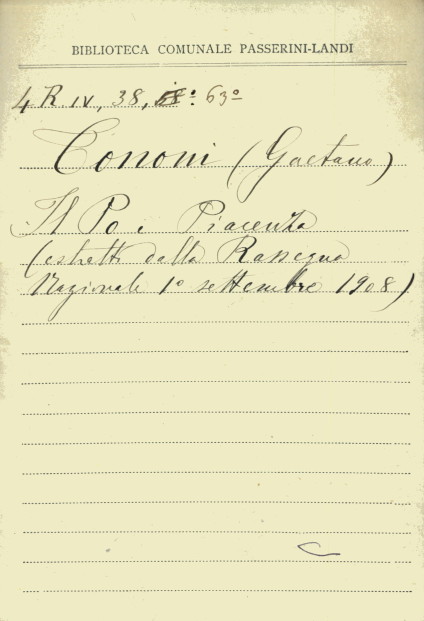 BIBLIOTECA COMUNALE PASSERINI-LANDI
4 R IV, 38, 63º
Cononi (Gaetano)
Il Po e Piacenza
(estratti dalla Rassegna
Nazionale 1º settembre 1908)